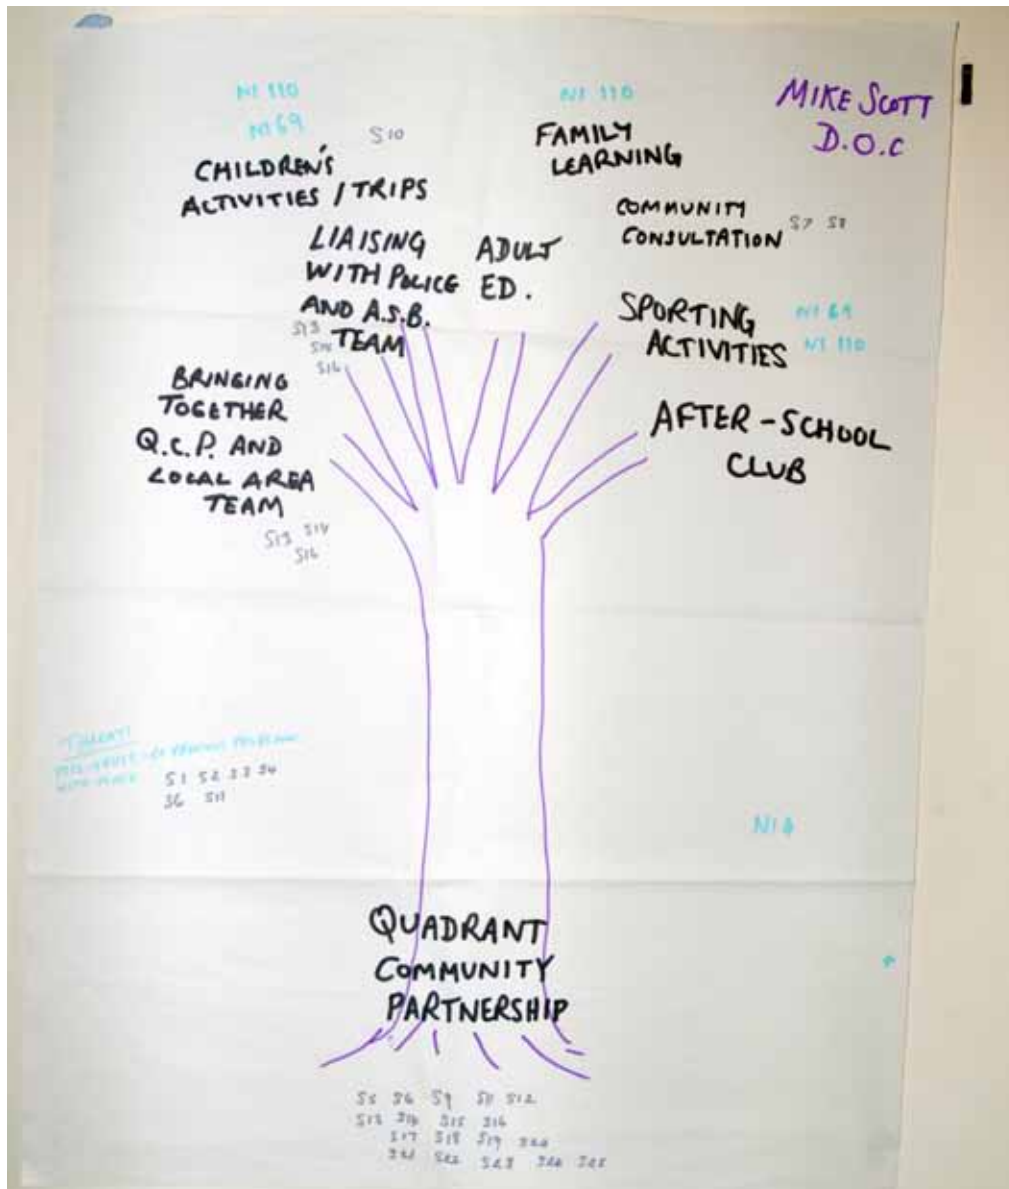 NI 110
NI 69
S10
CHILDREN'S
ACTIVITIES / TRIPS
NI 110
FAMILY
LEARNING
MIKE SCOTT
D.O.C
LIAISING
WITH POLICE
AND A.S.B.
TEAM
S13
S16
ADULT
ED.
COMMUNITY
CONSULTATION
S7 S8
SPORTING
ACTIVITIES
NI 69
NI 110
BRINGING
TOGETHER
Q.C.P. AND
LOCAL AREA
TEAM
S13 S14
S16
AFTER-SCHOOL
CLUB
S1 S2 S3 S4
S6 S11
QUADRANT
COMMUNITY
PARTNERSHIP
S5 S6 S9 S11 S12
S13 S14 S15 S16
S17 S18 S19 S20
S21 S22 S23 S24 S25